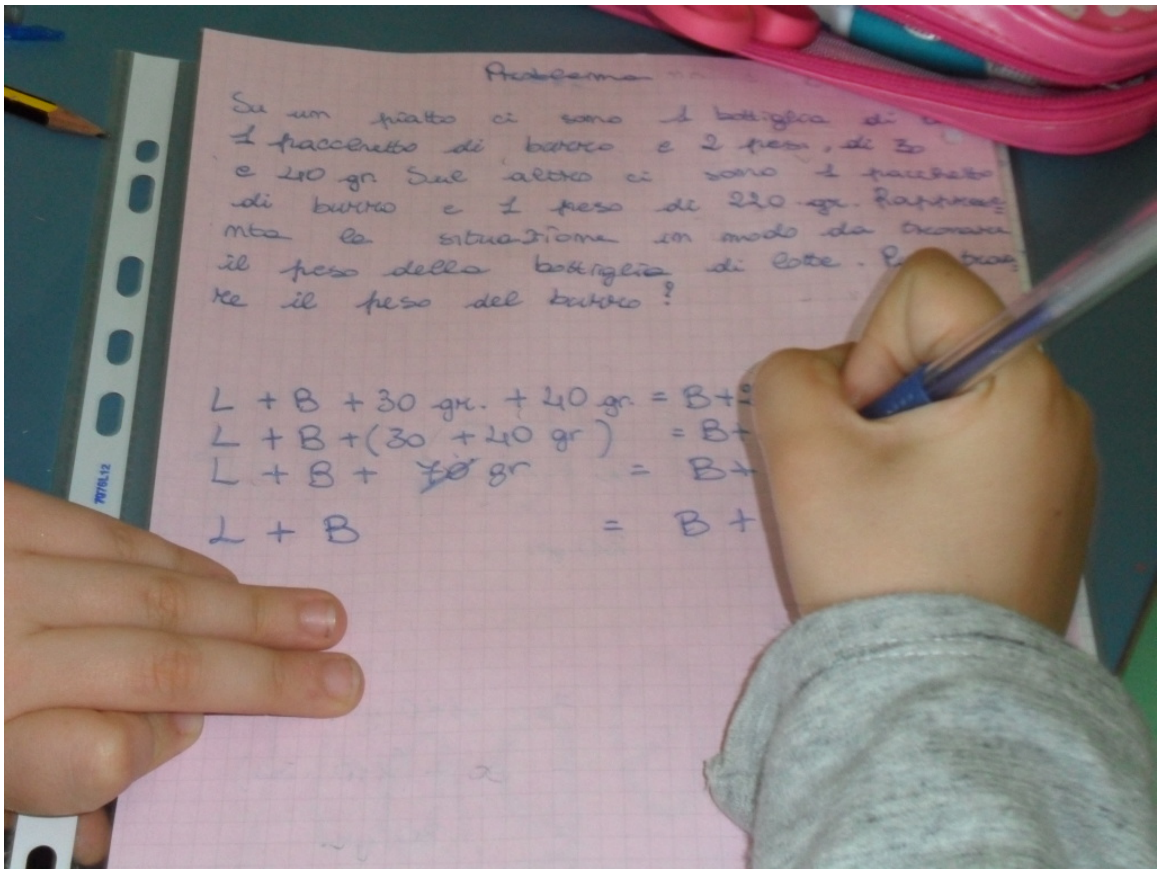 Problema
Su un piatto ci sono 1 bottiglia di
1 pacchetto di burro e 2 pesi, di 30
e 40 gr. Sul altro ci sono 1 pacchetto
di burro e 1 peso di 220 gr. Rappres=
nta la situazione in modo da trovare
il peso della bottiglia di latte.
re il peso del burro?
L + B + 30 gr. + 40 gr. = B +
L + B + (30 + 40 gr) = B +
L + B + 70 gr = B +
L + B = B +
7076L12